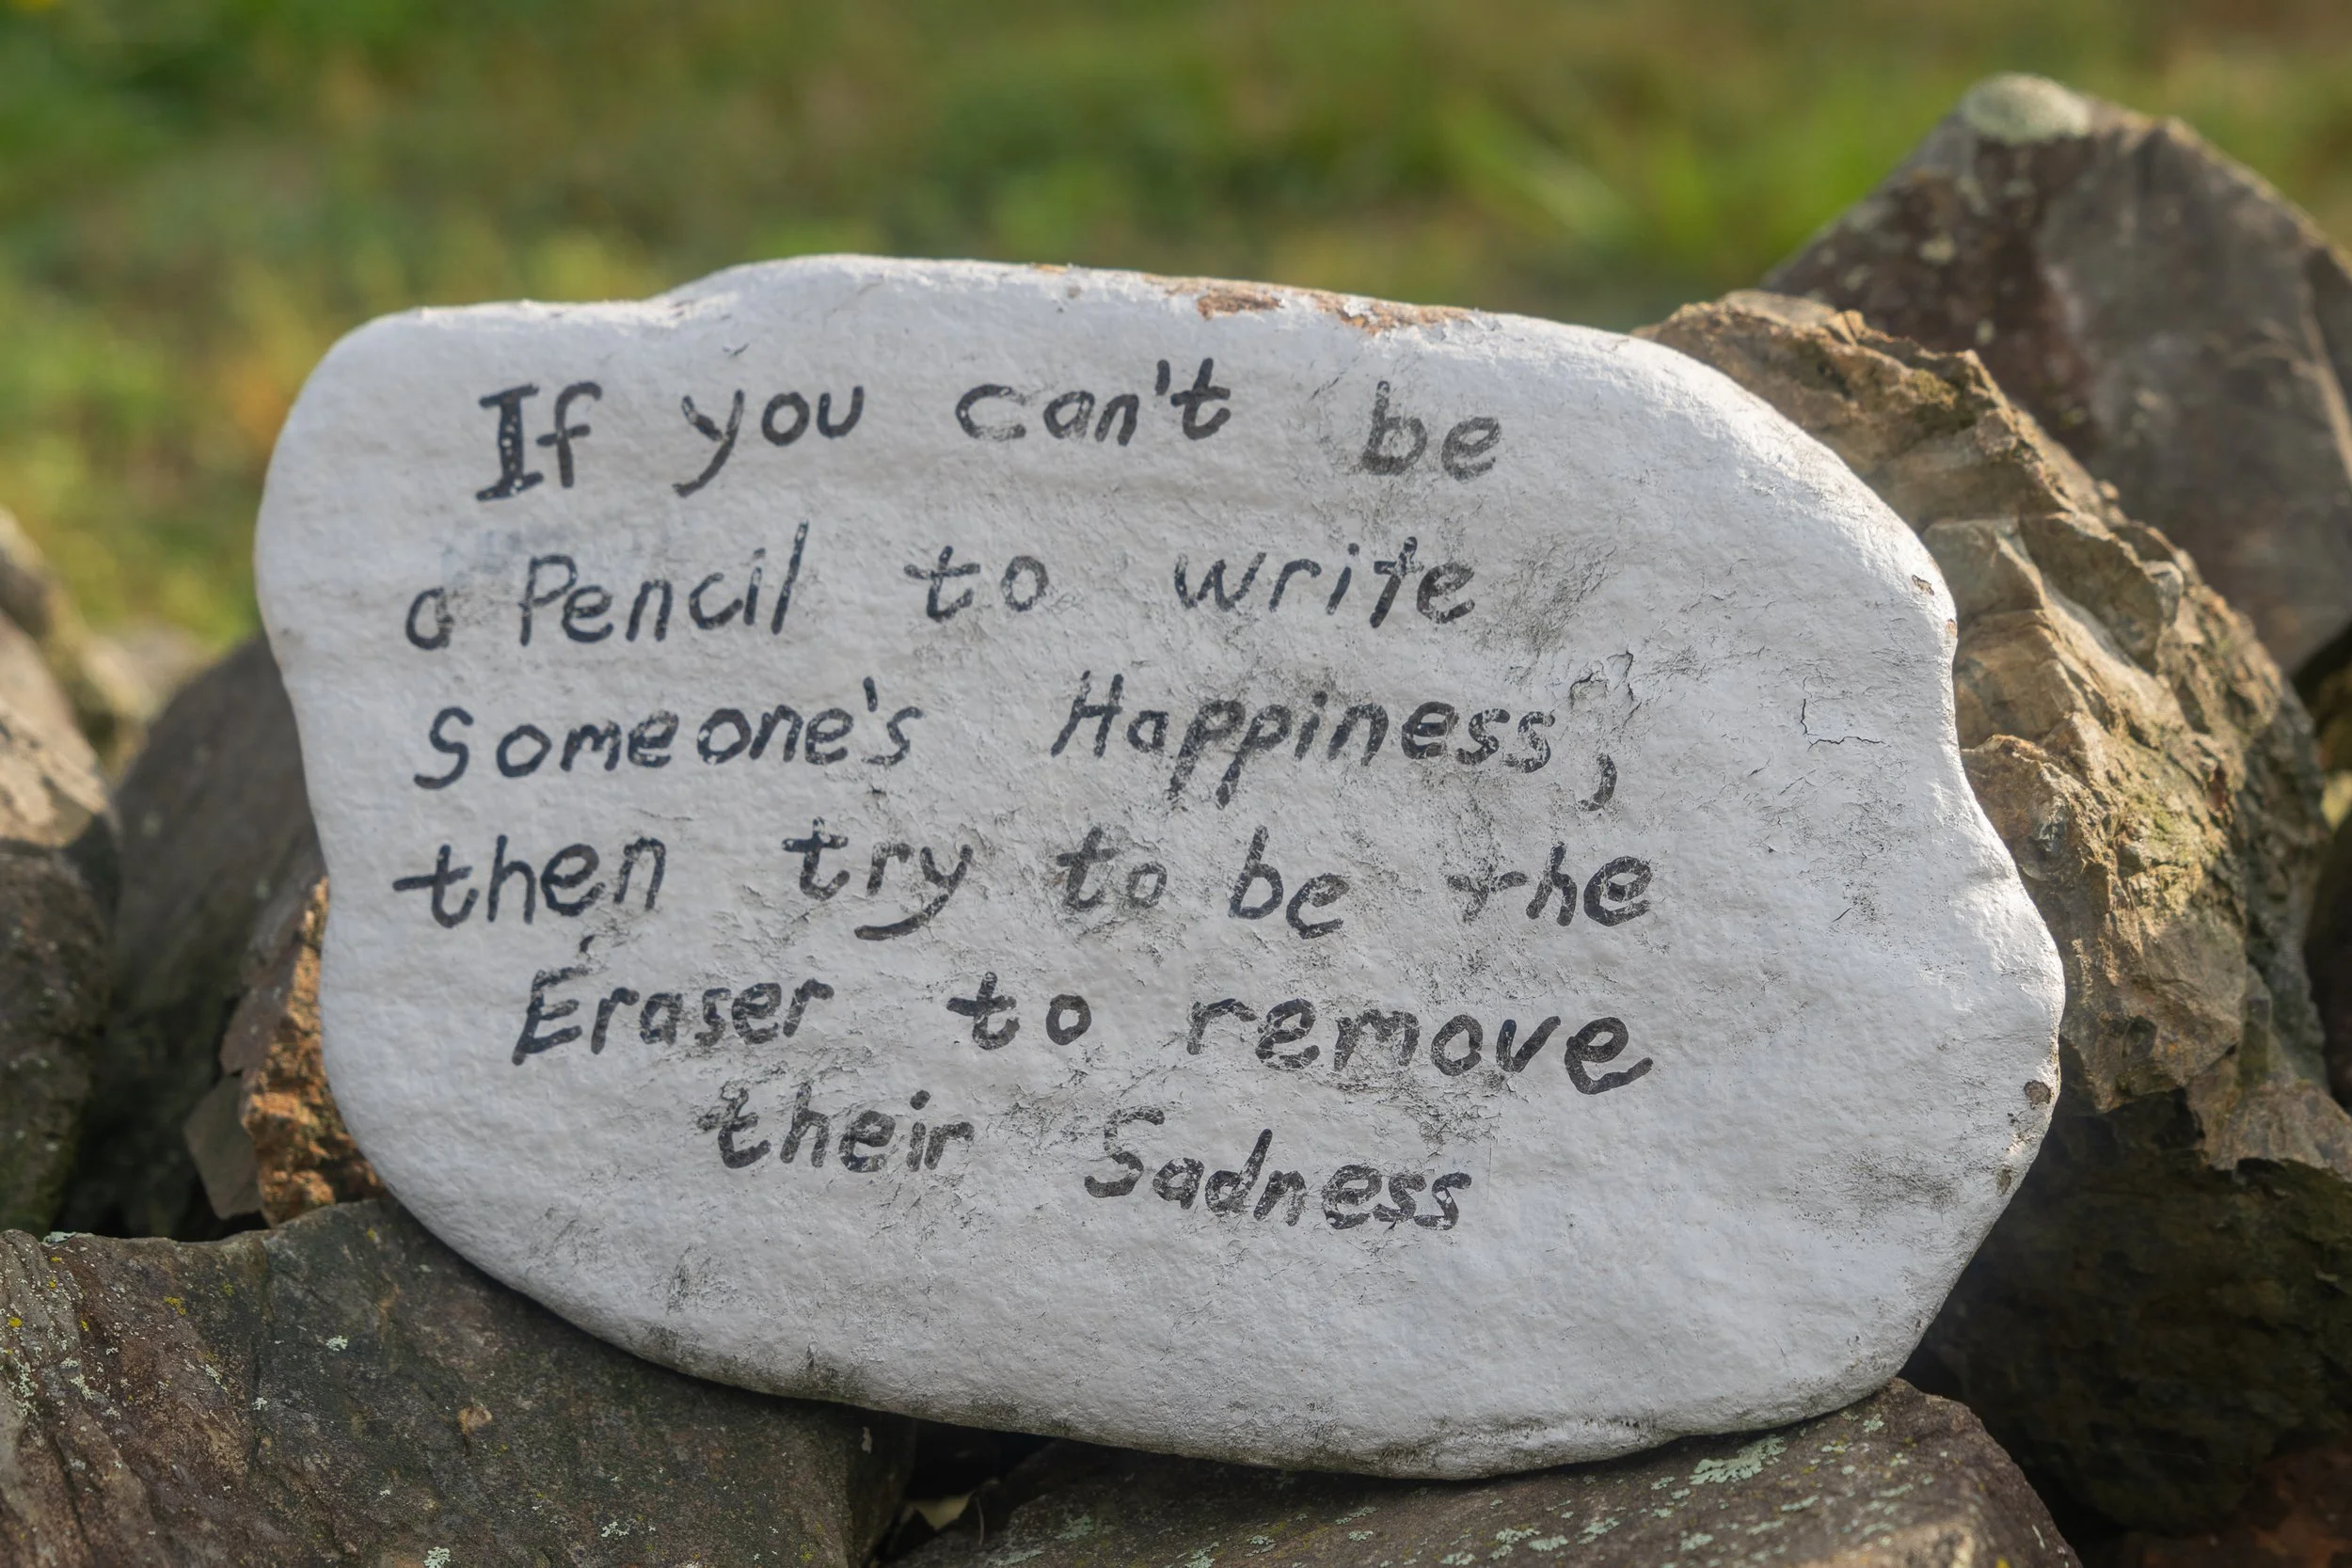 If you can't be
a Pencil to write
Someone's Happiness,
then try to be the
Eraser to remove
their Sadness